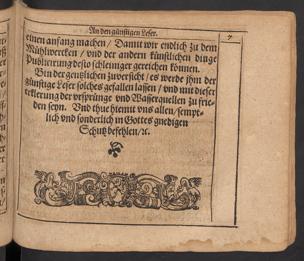 An den günstigen Leser.
7
einen anfang machen / Damit wir endlich zu dem
Mühlwercken / vnd der andern künstlichen dinge
Publicierung desto schleuniger gereichen können.
Bin der gentzlichen zuversicht / es werde ihm der
günstige Leser solches gefallen lassen / vnd mit dieser
erklerung der vrsprünge vnd Wasserquellen zu frie-
den seyn. Vnd thue hiemit vns allen / sempt-
lich vnd sonderlich in Gottes gnedigen
Schutz befehlen / ꝛc.